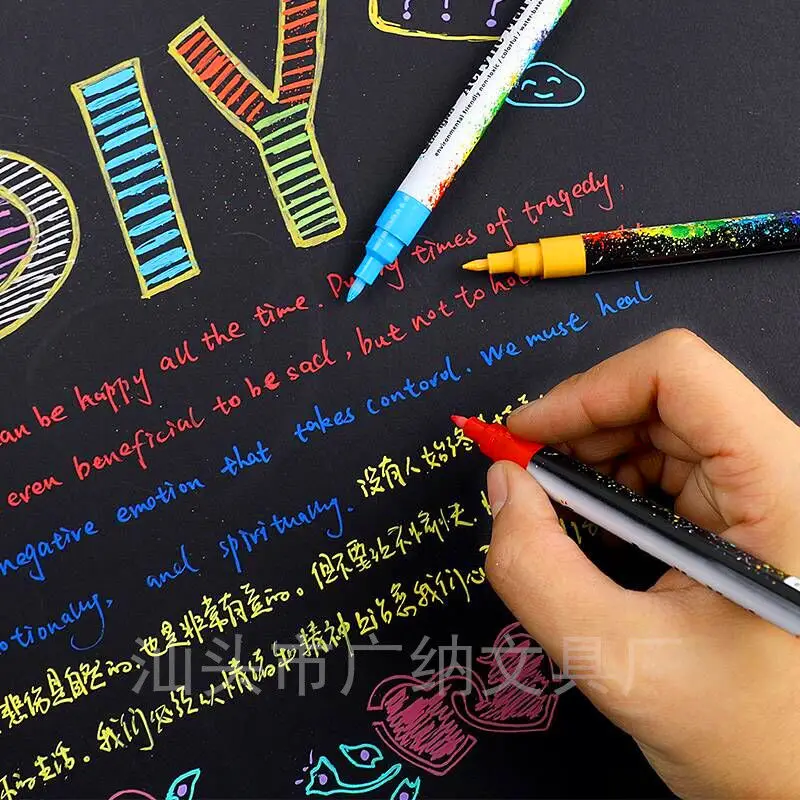 DIY
environmental friendly non-toxic / colorful / water-based
an be happy all the time. During times of tragedy,
even beneficial to be sad, but not to
negative emotion that takes contorol. We must heal
otionally, and spiritually. 没有人始终
悲伤是自然的,也是非常有益的。但不要让
我们必须从情感和精神上治愈我们
的生活。
汕头市广纳文具厂